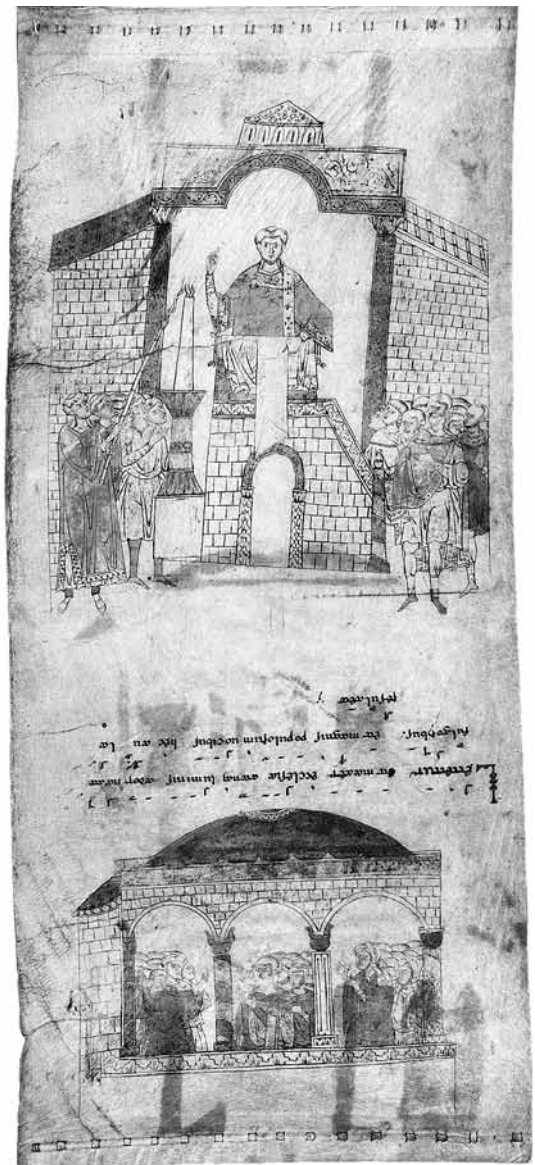 Letetur et mater ecclesia tanti luminis adornata
fulgoribus. et magnis populorum uocibus hec au la
resultet